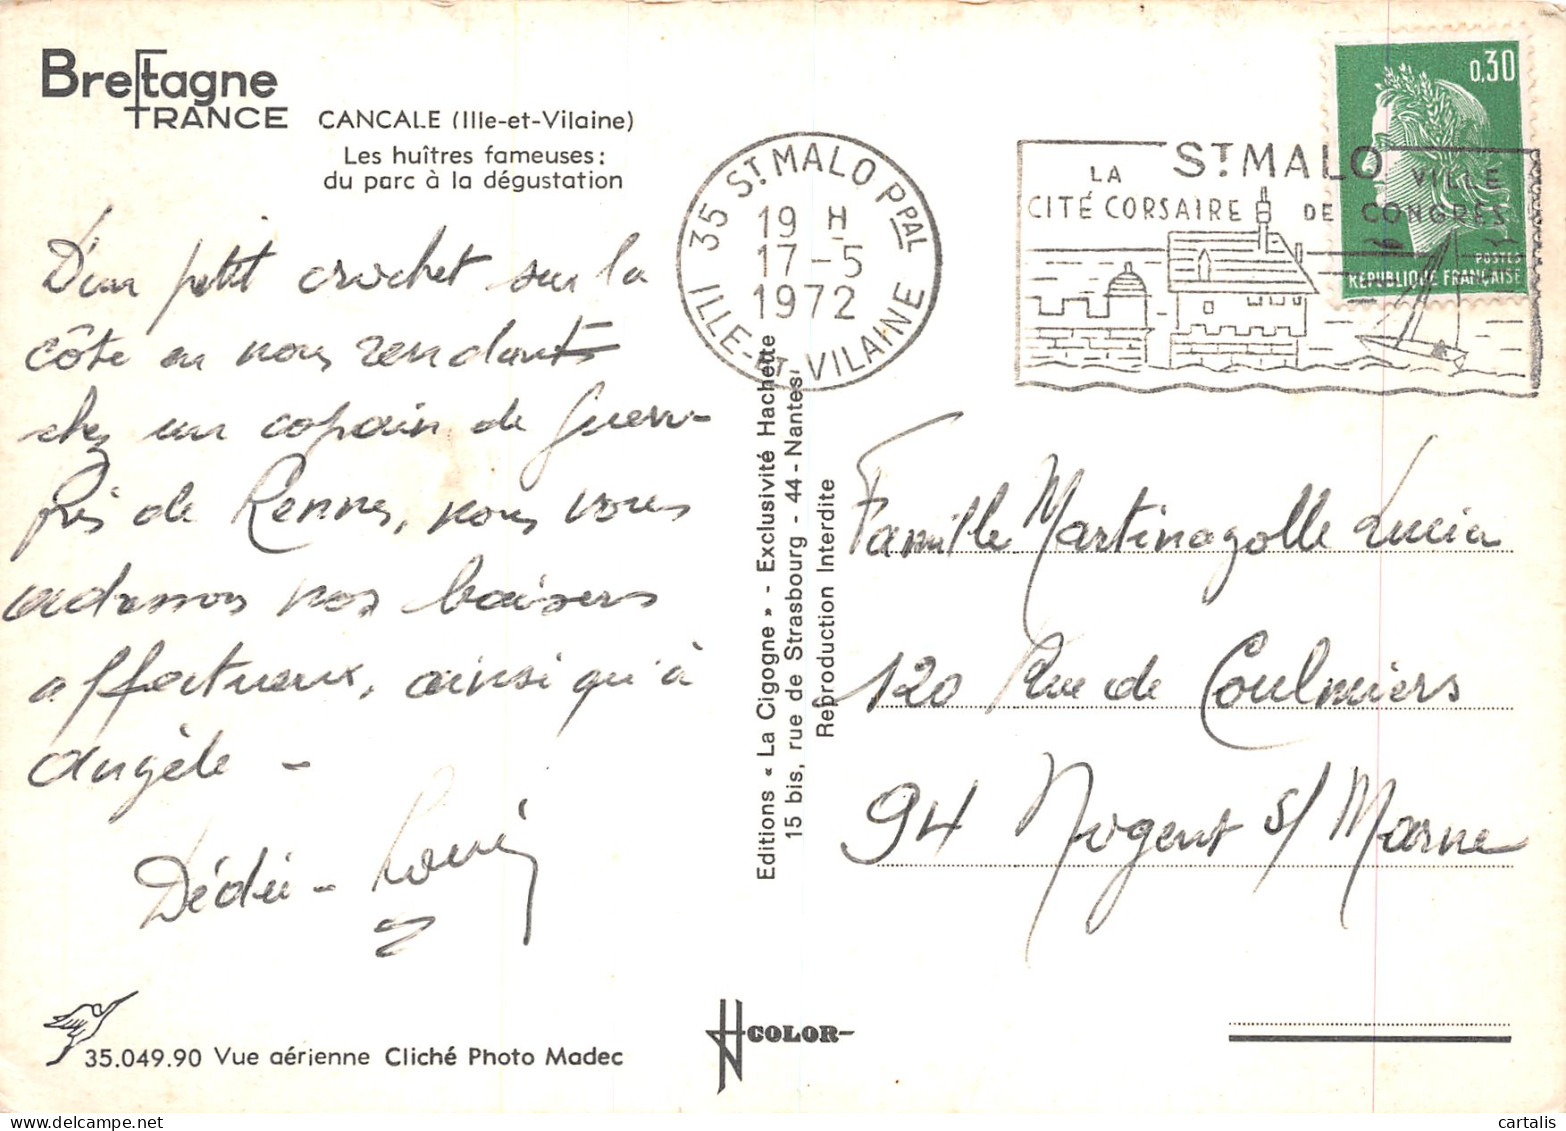 Bretagne
FRANCE
CANCALE (Ille-et-Vilaine)
Les huîtres fameuses :
du parc à la dégustation
D'un petit crochet sur la
côte en nous rendants
chez un copain de guerre
Près de Rennes, nous vous
adressons nos baisers
affectueux, ainsi qu'à
Angèle -
Dédée - Louis
35.049.90 Vue aérienne Cliché Photo Madec
Editions « La Cigogne » - Exclusivité Hachette
15 bis, rue de Strasbourg - 44 - Nantes
Reproduction Interdite
COLOR
35 ST MALO PPAL
19 H
17 - 5
1972
ILLE-ET-VILAINE
ST MALO
LA VILLE
CITÉ CORSAIRE DE CONGRÈS
0,30
POSTES
RÉPUBLIQUE FRANÇAISE
Famille Martinazolle Lucien
120 Rue de Coulmiers
94 Nogent s/ Marne
cartalis